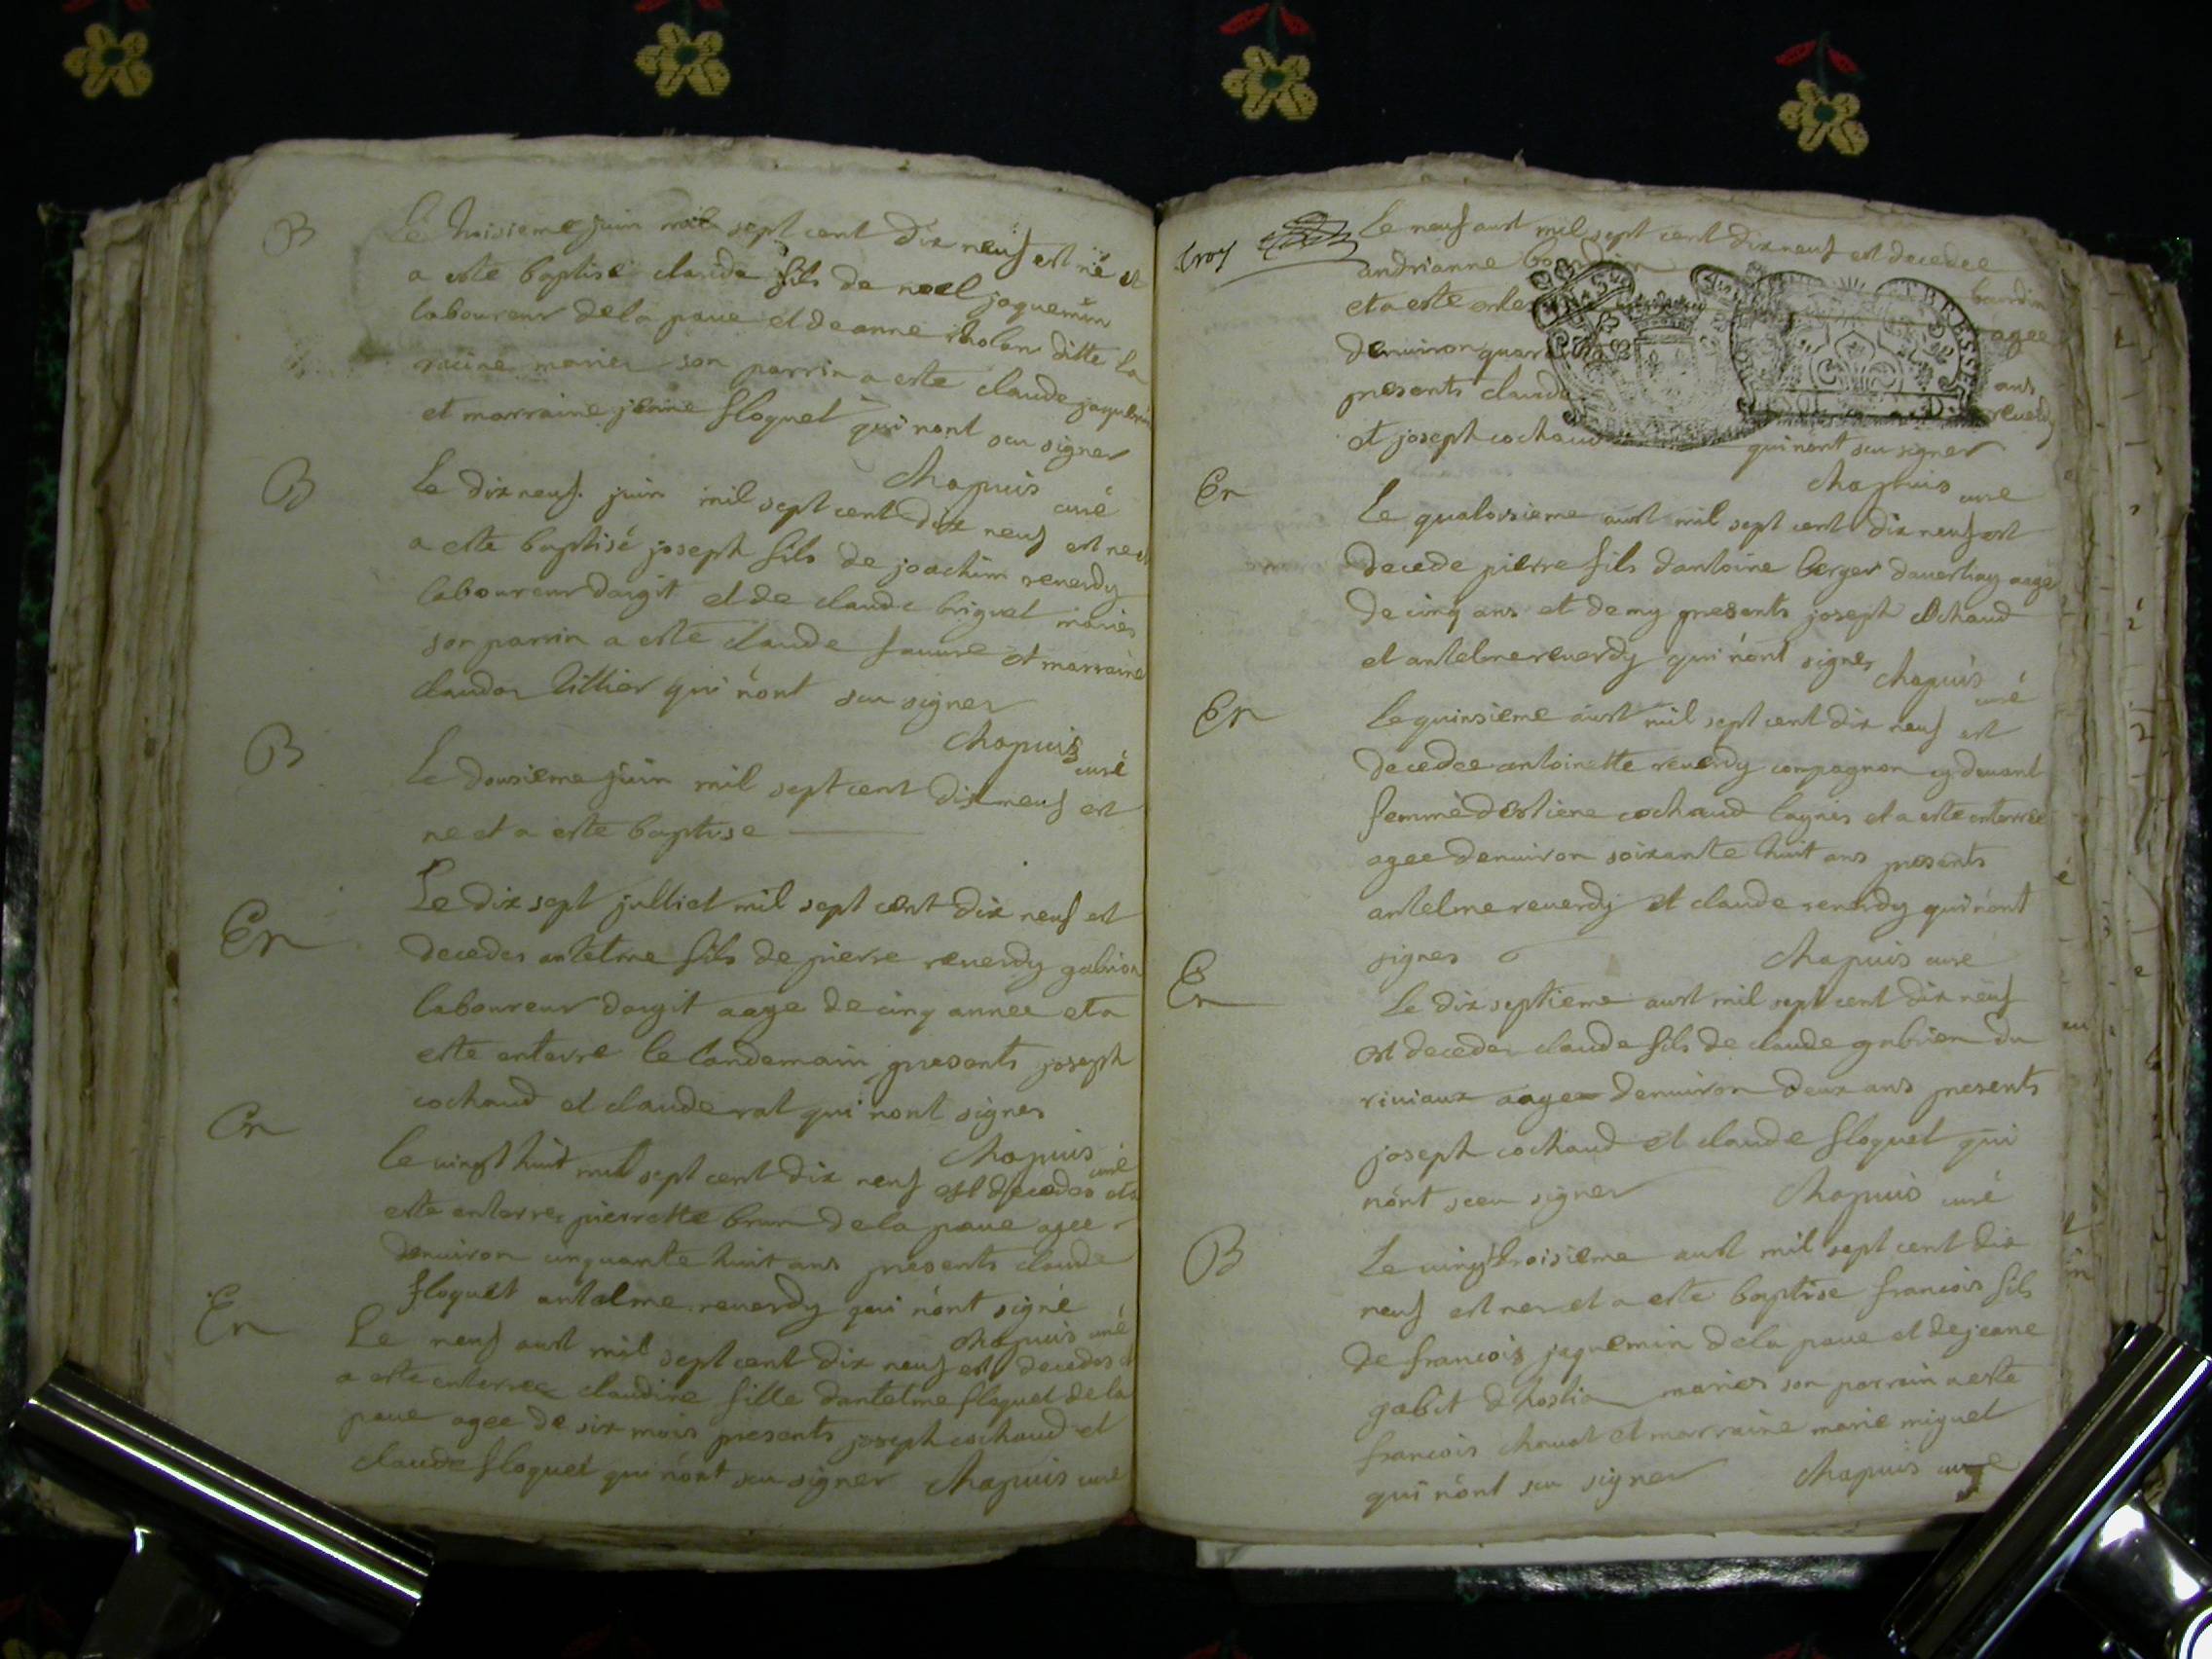 B
Le troisieme juin mil sept cent dix neuf est né et
a este baptisé claude fils de noel jaquemin
laboureur dela paue et de anne ditte la
racine maries son parrin a este claude jaquemin
et marraine jeanne floquet qui n'ont sceu signer
chapuis curé
B
Le dix neuf juin mil sept cent dix neuf est ne et
a este baptisé joseph fils de joachim reuerdy
laboureur dargit et de claude briguet maries
son parrin a este claude faure et marraine
claudon tittier qui n'ont seu signer
chapuis curé
B
Le dousieme juin mil sept cent dix neuf est
ne et a este baptise
En
Le dix sept julliet mil sept cent dix neuf est
decedes antelme fils de pierre reuerdy gabrion
laboureur dargit aage de cinq annee et a
este enterre le landemain presents joseph
cochaud et claude rat qui n'ont signes
chapuis curé
En
le uingt huit mil sept cent dix neuf est decedes et a
este enterres pierrette brun dela paue agee
denuiron cinquante huit ans presents claude
floquet antelme reuerdy qui n'ont signé
chapuis curé
En
Le neuf aust mil sept cent dix neuf est decedes et
a este enterree claudine fille dantelme floquet dela
paue agee de six mois presents joseph cochaud et
claude floquet qui n'ont seu signer chapuis curé
troy
Le neuf aust mil sept cent dix neuf est decedee
andrianne
et a este agee
denuiron ans
presents claude reuerdy
et joseph cochaud qui n'ont seu signer
BRESSE
chapuis curé
En
Le quatorsieme aust mil sept cent dix neuf est
decede pierre fils dantoine berger dauerliay aage
de cinq ans et demy presents joseph cochaud
et antelme reuerdy qui n'ont signes
chapuis curé
En
Le quinsieme aust mil sept cent dix neuf est
decedee antoinette reuerdy compagnon cy deuant
femme destiene cochaud lagnis et a este enterree
agee denuiron soixante huit ans presents
antelme reuerdy et claude reuerdy qui n'ont
signes chapuis curé
En
Le dix septieme aust mil sept cent dix neuf
est decedes claude fils de claude gabrion du
riuiaux aages denuiron deux ans presents
joseph cochaud et claude floquet qui
n'ont sceu signer chapuis curé
B
Le uingt troisieme aust mil sept cent dix
neuf est nes et a este baptise francois fils
de francois jaquemin dela paue et de jeane
gabet dhostia maries son parrain a este
francois chauat et marraine marie miguet
qui n'ont seu signer chapuis curé